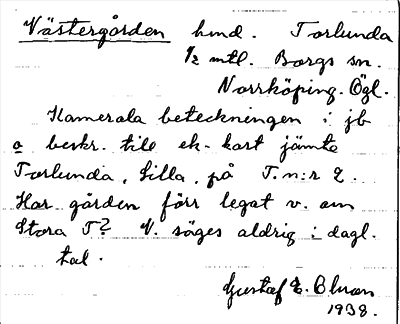 Västergården hmd. Torlunda
1/2 mtl. Borgs sn.
Norrköping. Ögl.
Kamerala beteckningen i jb
o beskr. till ek-kart jämte
Torlunda, Lilla, på T.n:r 2.
Har gården förr legat v. om
Stora T? V. säges aldrig i dagl.
tal.
Gustaf E. Olsson
1938.